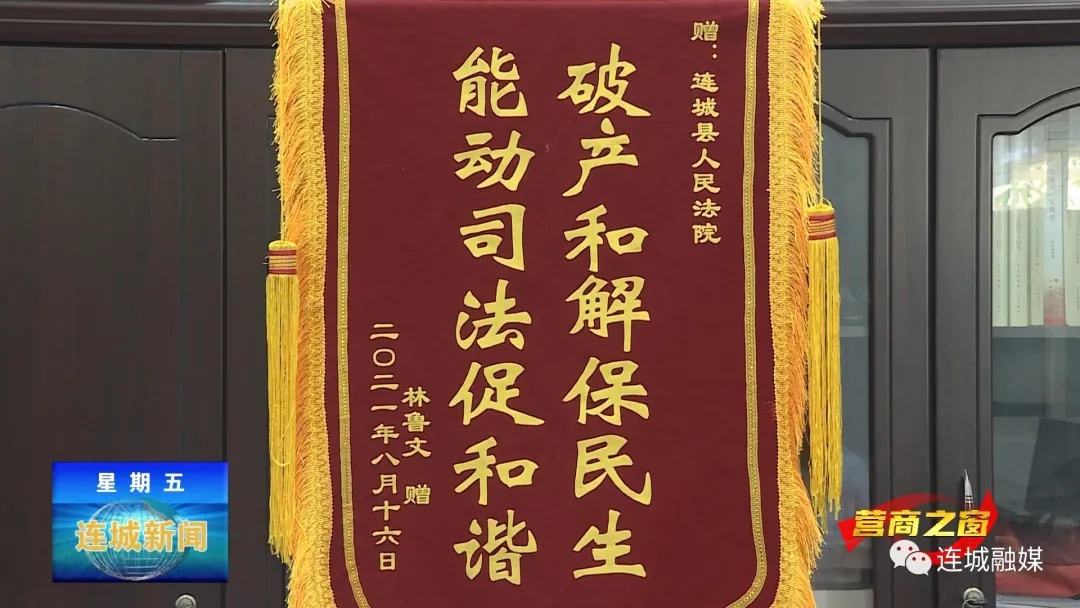 赠：连城县人民法院
破产和解保民生
能动司法促和谐
林鲁文 赠
二〇二一年八月十六日
星期五
连城新闻
营商之窗
连城融媒